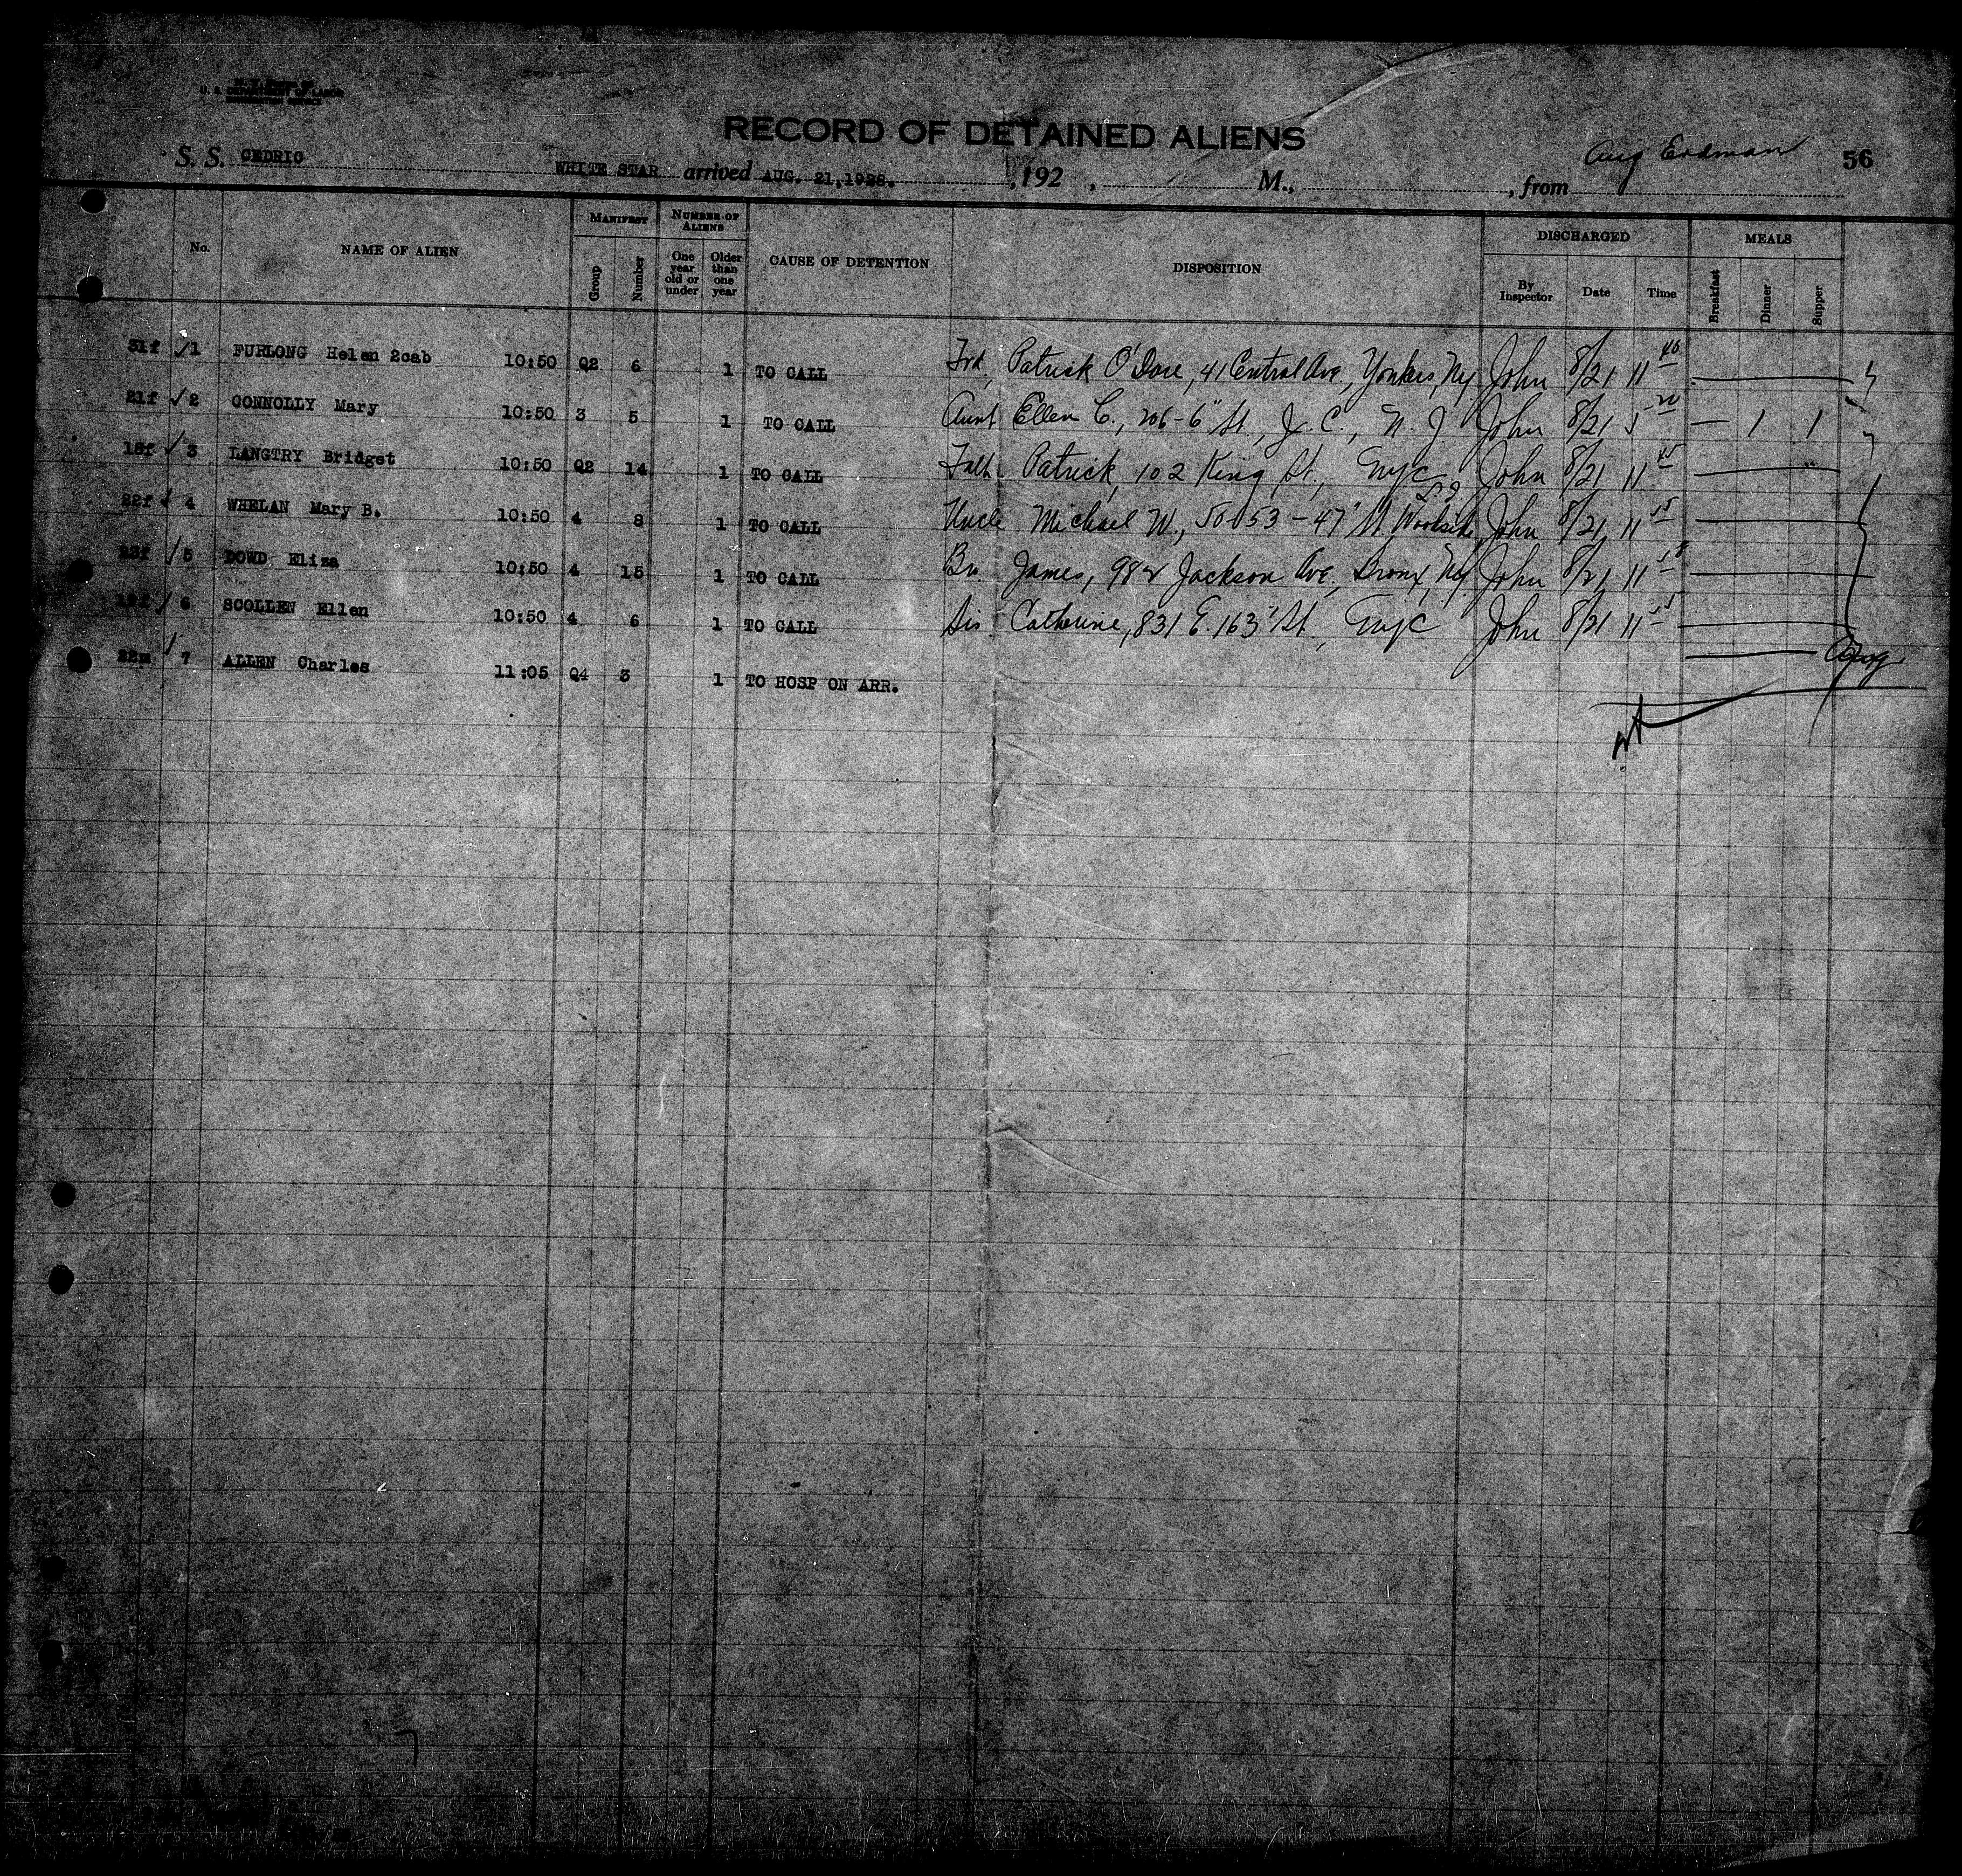 U. S. DEPARTMENT OF LABOR
IMMIGRATION SERVICE
RECORD OF DETAINED ALIENS
S. S. CEDRIC WHITE STAR arrived AUG. 21, 1928. , 192 , M., , from Aug Erdman 56
No. NAME OF ALIEN MANIFEST Group Number NUMBER OF ALIENS One year old or under Older than one year CAUSE OF DETENTION DISPOSITION DISCHARGED By Inspector Date Time MEALS Breakfast Dinner Supper
31f 1 FURLONG Helen 2cab 10:50 Q2 6 1 TO CALL Frd. Patrick O'Dore, 41 Central Ave, Yonkers, NY John 8/21 11 40
21f 2 CONNOLLY Mary 10:50 3 5 1 TO CALL Aunt Ellen C., 206-6" St, J. C., N. J. John 8/21 5 20 — 1 1
18f 3 LANGTRY Bridget 10:50 Q2 14 1 TO CALL Fath Patrick, 102 King St., NYC John 8/21 11 45
22f 4 WHELAN Mary B. 10:50 4 8 1 TO CALL Uncle Michael W., 5053-47' St Woodside, L I John 8/21 11 55
23f 5 DOWD Eliza 10:50 4 15 1 TO CALL Bro James, 982 Jackson Ave, Bronx, NY John 8/21 11
6 SCOLLEN Ellen 10:50 4 6 1 TO CALL Sis Catherine, 831 E. 163' St. NYC John 8/21 11 55
22m 7 ALLEN Charles 11:05 Q4 3 1 TO HOSP ON ARR.